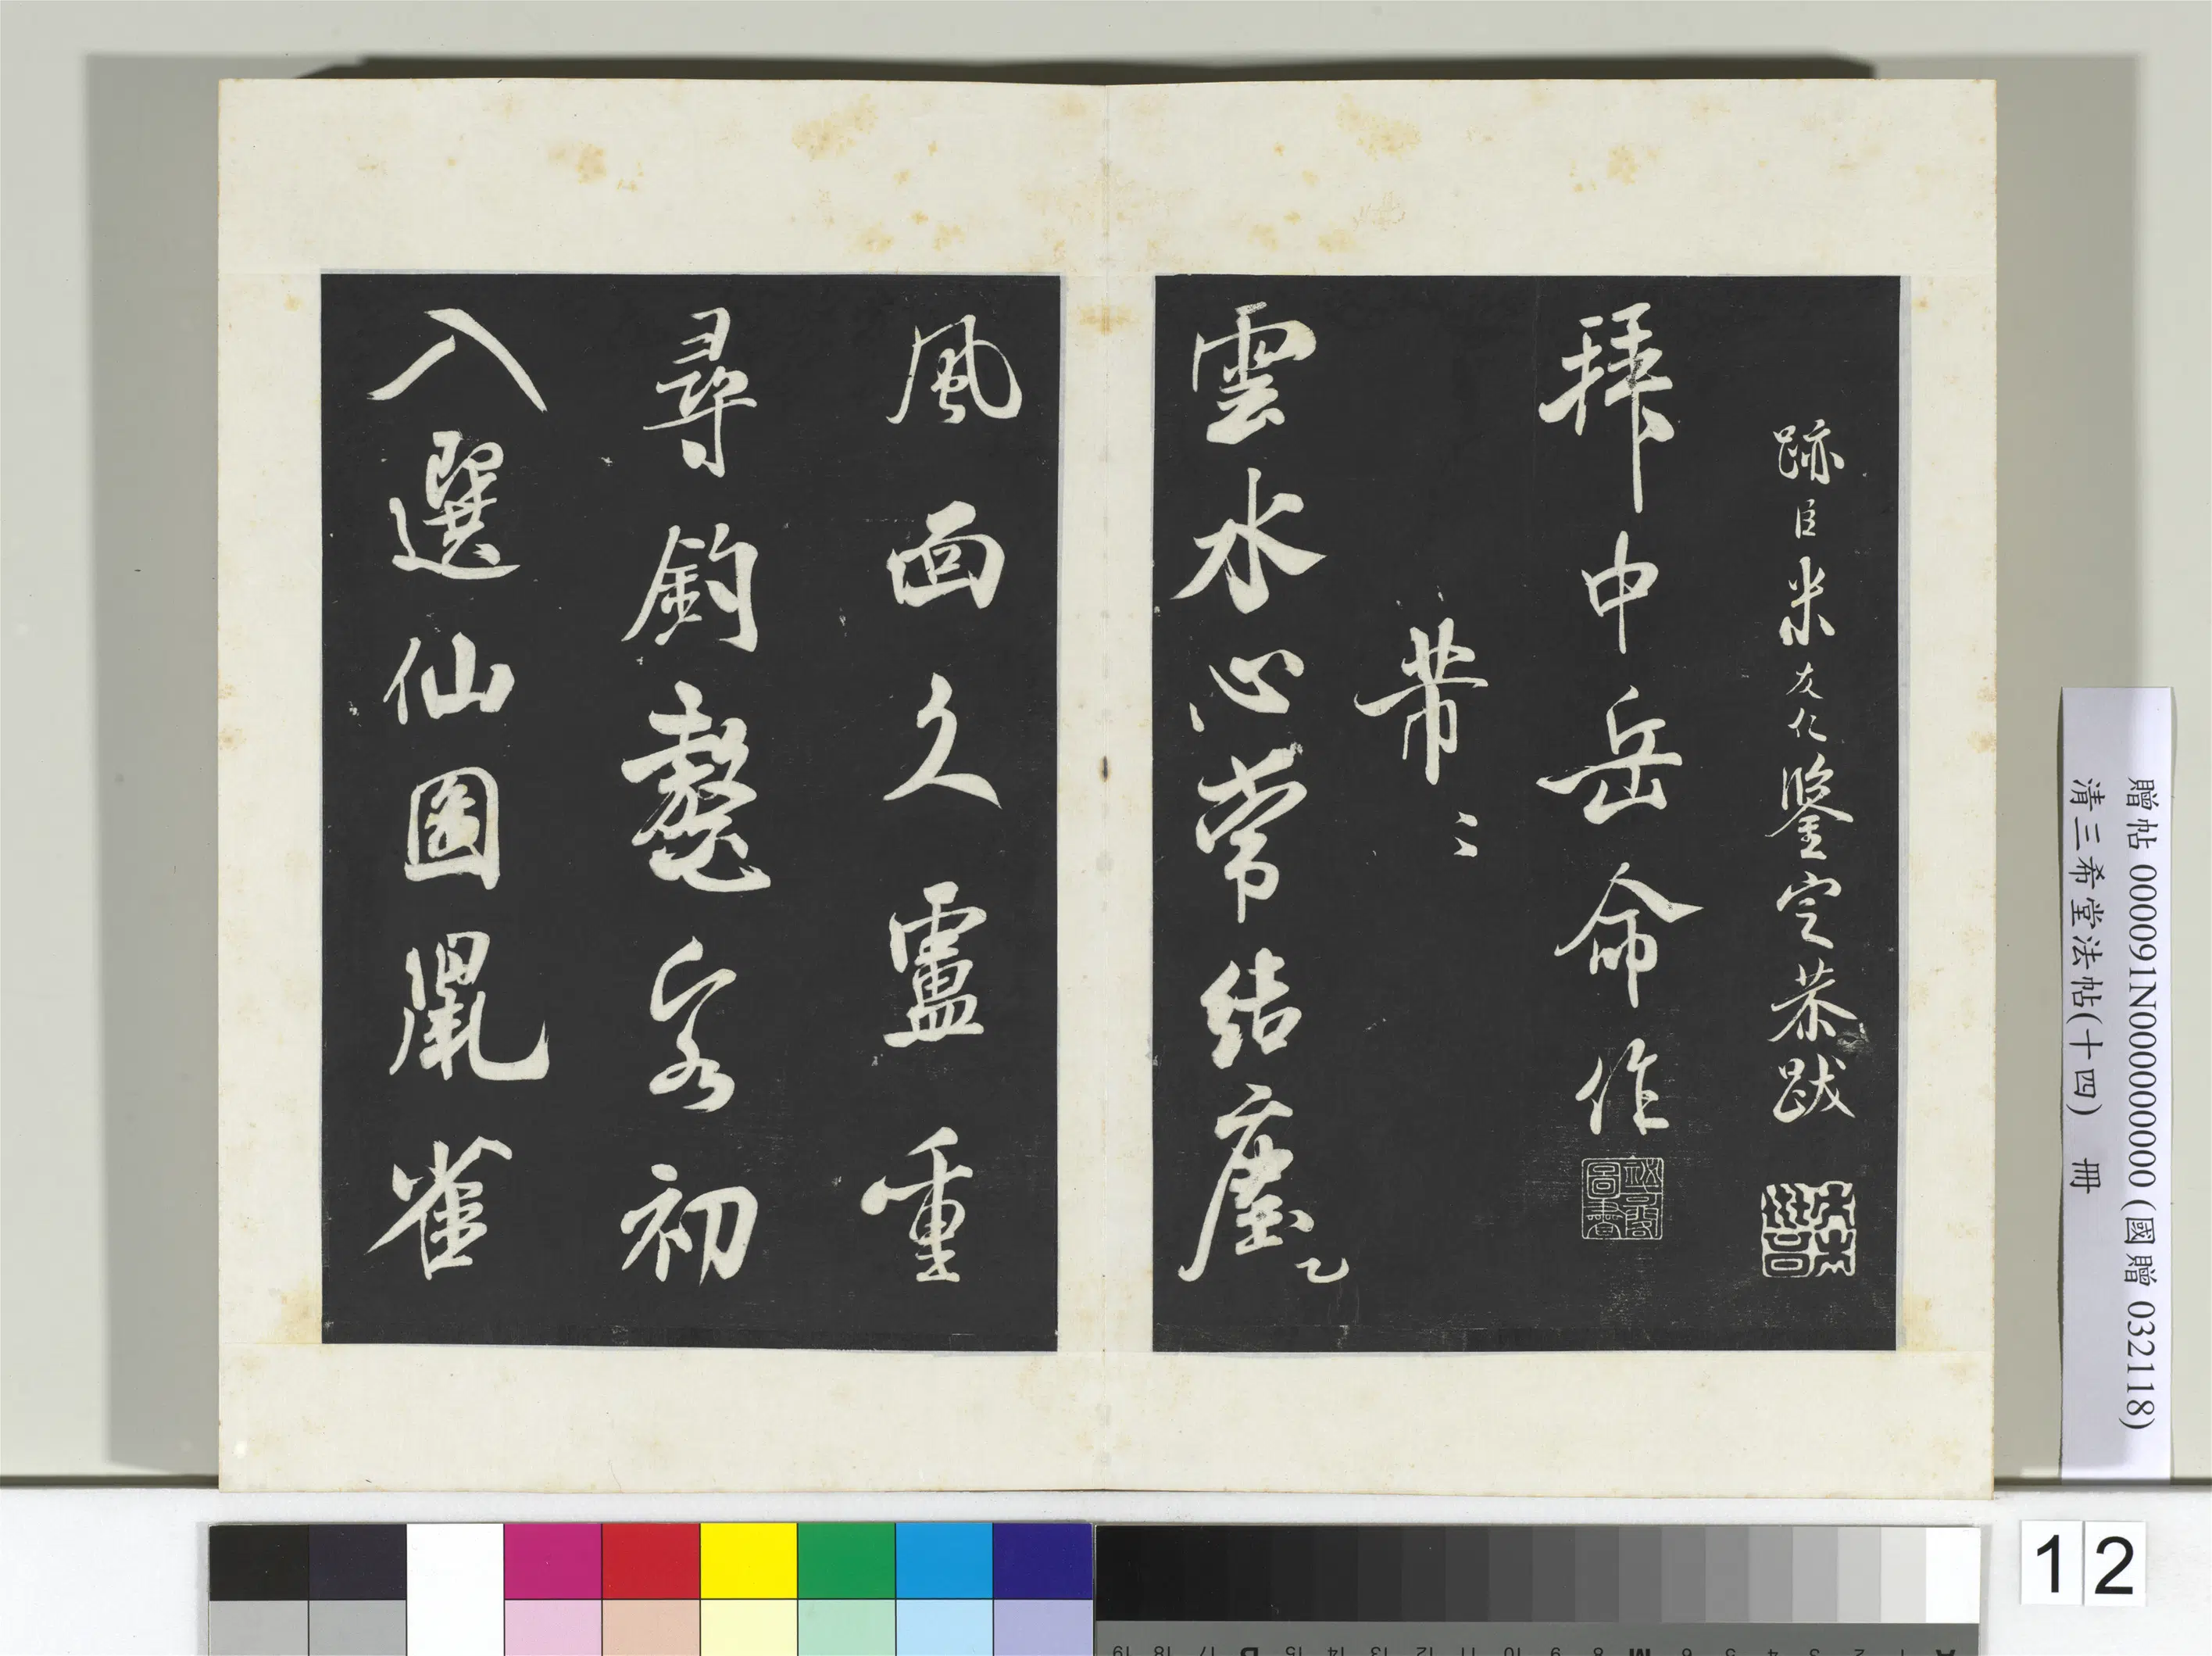 跡臣米友仁鑒定恭跋
拜中岳命作
秋壑圖書
芾〻
雲水心常結塵乙
風面久盧重
尋釣鼇客初
入選仙圖鼠雀
贈帖 000091N000000000 (國贈 032118)
清三希堂法帖(十四) 冊
12